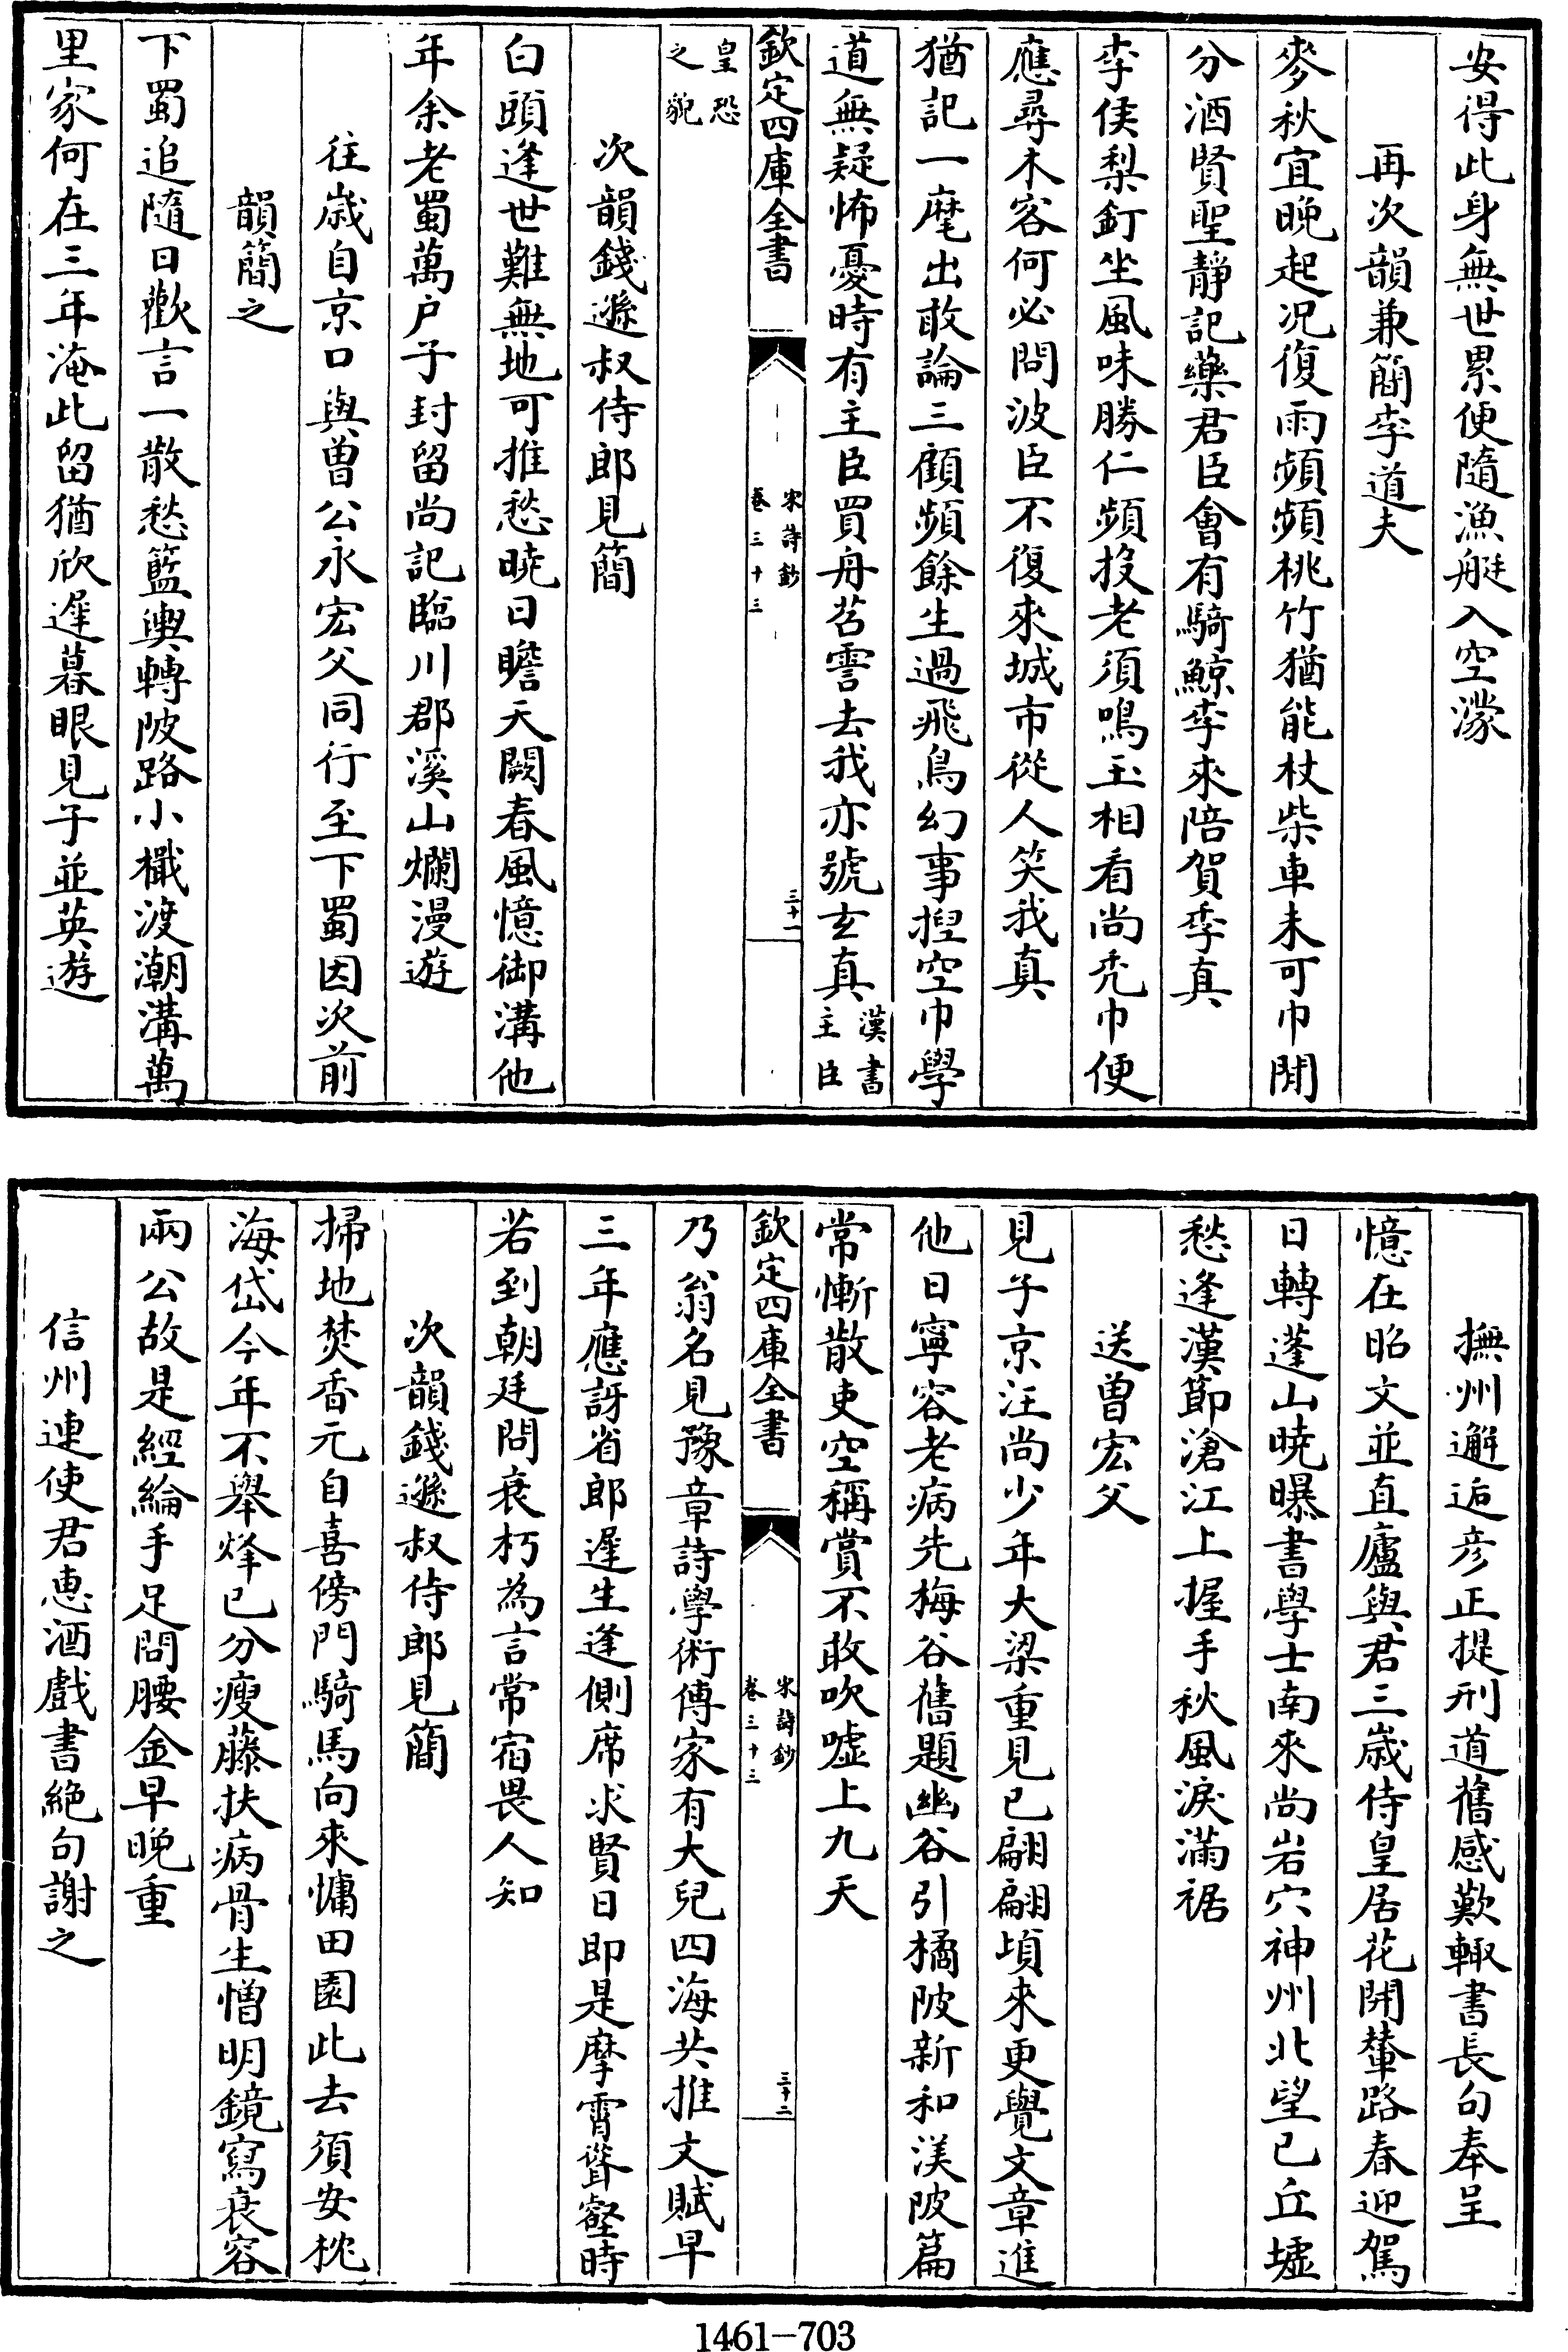 安得此身無世累便隨漁艇入空濛
再次韻兼簡李道夫
麥秋宜晚起况復雨頻頻桃竹猶能杖柴車未可巾閒
分酒賢聖靜記藥君臣會有騎鯨李來陪賀季真
李侯梨釘坐風味勝仁頻投老須鳴玉相看尚禿巾便
應尋木客何必問波臣不復來城市從人笑我真
猶記一麾出敢論三顧頻餘生過飛鳥幻事揑空巾學
道無疑怖憂時有主臣買舟苕霅去我亦號玄真漢書主臣
欽定四庫全書
宋詩鈔
卷三十三
三十一
皇恐之貌
次韻錢遜叔侍郎見簡
白頭逢世難無地可推愁曉日瞻天闕春風憶御溝他
年余老蜀萬户子封留尚記臨川郡溪山爛漫遊
往歲自京口與曾公永宏父同行至下蜀因次前
韻簡之
下蜀追隨日歡言一散愁籃輿轉陂路小檝渡潮溝萬
里家何在三年淹此留猶欣遲暮眼見子並英遊
撫州邂逅彦正提刑道舊感歎輙書長句奉呈
憶在昭文並直廬與君三歲侍皇居花開輦路春迎駕
日轉蓬山曉曝書學士南來尚岩穴神州北望已丘墟
愁逢漢節滄江上握手秋風淚滿裾
送曾宏父
見子京汪尚少年大梁重見已翩翩頃來更覺文章進
他日寧容老病先梅谷舊題幽谷引橘陂新和渼陂篇
常慚散吏空稱賞不敢吹噓上九天
欽定四庫全書
宋詩鈔
卷三十三
三十二
乃翁名見豫章詩學術傳家有大兒四海共推文賦早
三年應訝省郎遲生逢側席求賢日即是摩霄聳壑時
若到朝廷問衰朽為言常宿畏人知
次韻錢遜叔侍郎見簡
掃地焚香元自喜傍門騎馬向來慵田園此去須安枕
海岱今年不舉烽已分瘦藤扶病骨生憎明鏡寫衰容
兩公故是經綸手足問腰金早晚重
信州連使君惠酒戲書絶句謝之
1461-703